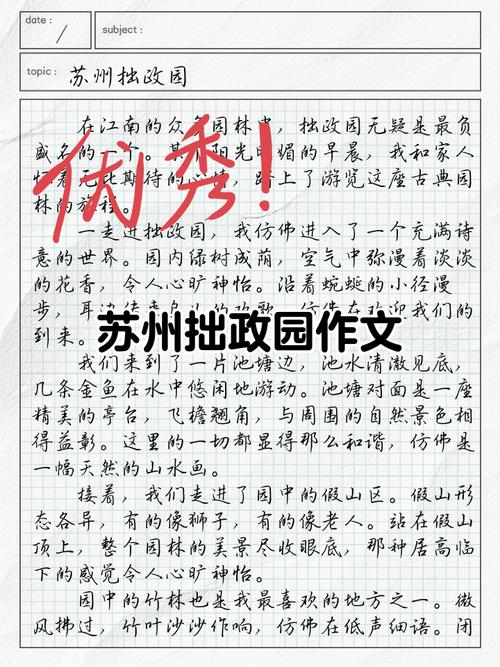 date :
subject :
topic : 苏州拙政园
在江南的众 园林 ，拙政园无疑是最负
盛名的一个。某 阳光明媚的早晨，我和家人
怀着无比期待的心情，踏上了游览这座古典园
林的旅程。
优秀!
一走进拙政园，我仿佛进入了一个充满诗
意的世界。园内绿树成荫，空气中弥漫着淡淡
的花香，令人心旷神怡。沿着蜿蜒的小径漫
步，耳边传来鸟儿的欢歌，仿佛在欢迎我们的
到来。
苏州拙政园作文
我们来到了一片池塘边，池水清澈见底，
几条金鱼在水中悠闲地游动。池塘对面是一座
精美的亭台，飞檐翘角，与周围的自然景色相
得益彰。这里的一切都显得那么和谐，仿佛是
一幅天然的山水画。
接着，我们走进了园中的假山区。假山形
态各异，有的像狮子，有的像老人。站在假山
顶上，整个园林的美景尽收眼底，那种居高临
下的感觉令人心旷神怡。
园中的竹林也是我最喜欢的地方之一。微
风拂过，竹叶沙沙作响，仿佛在低声细语。闭